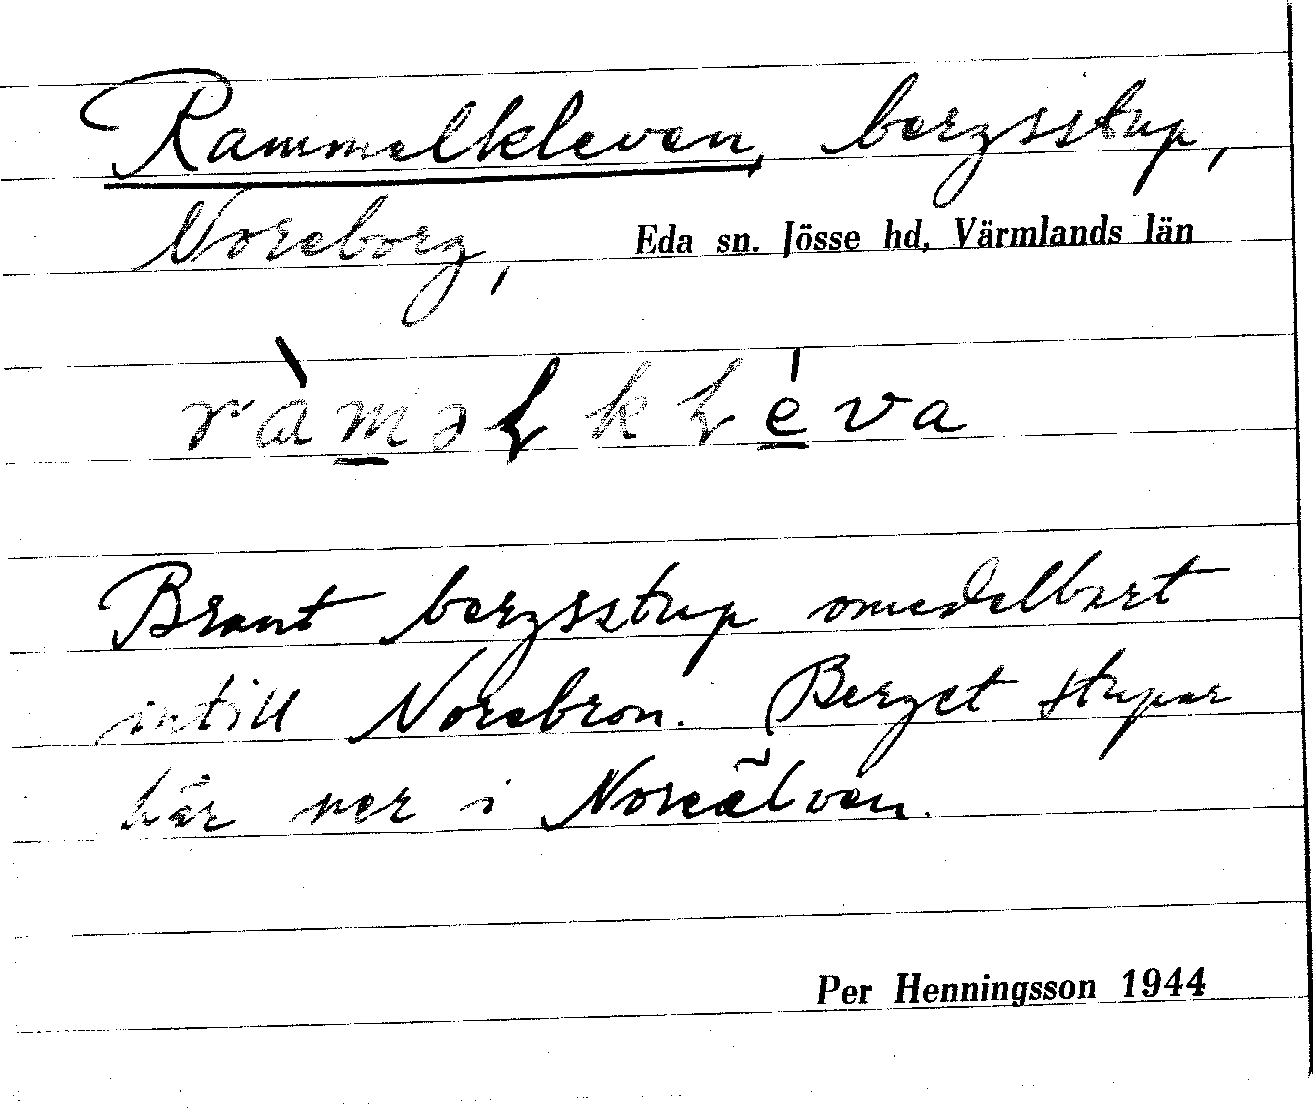 Rammelkleven, bergsstup,
Noreborg, Eda sn. Jösse hd, Värmlands län
ràməɽ kɽéva
Brant bergsstup omedelbart
intill Norebron. Berget stupar
här ner i Noreälven.
Per Henningsson 1944